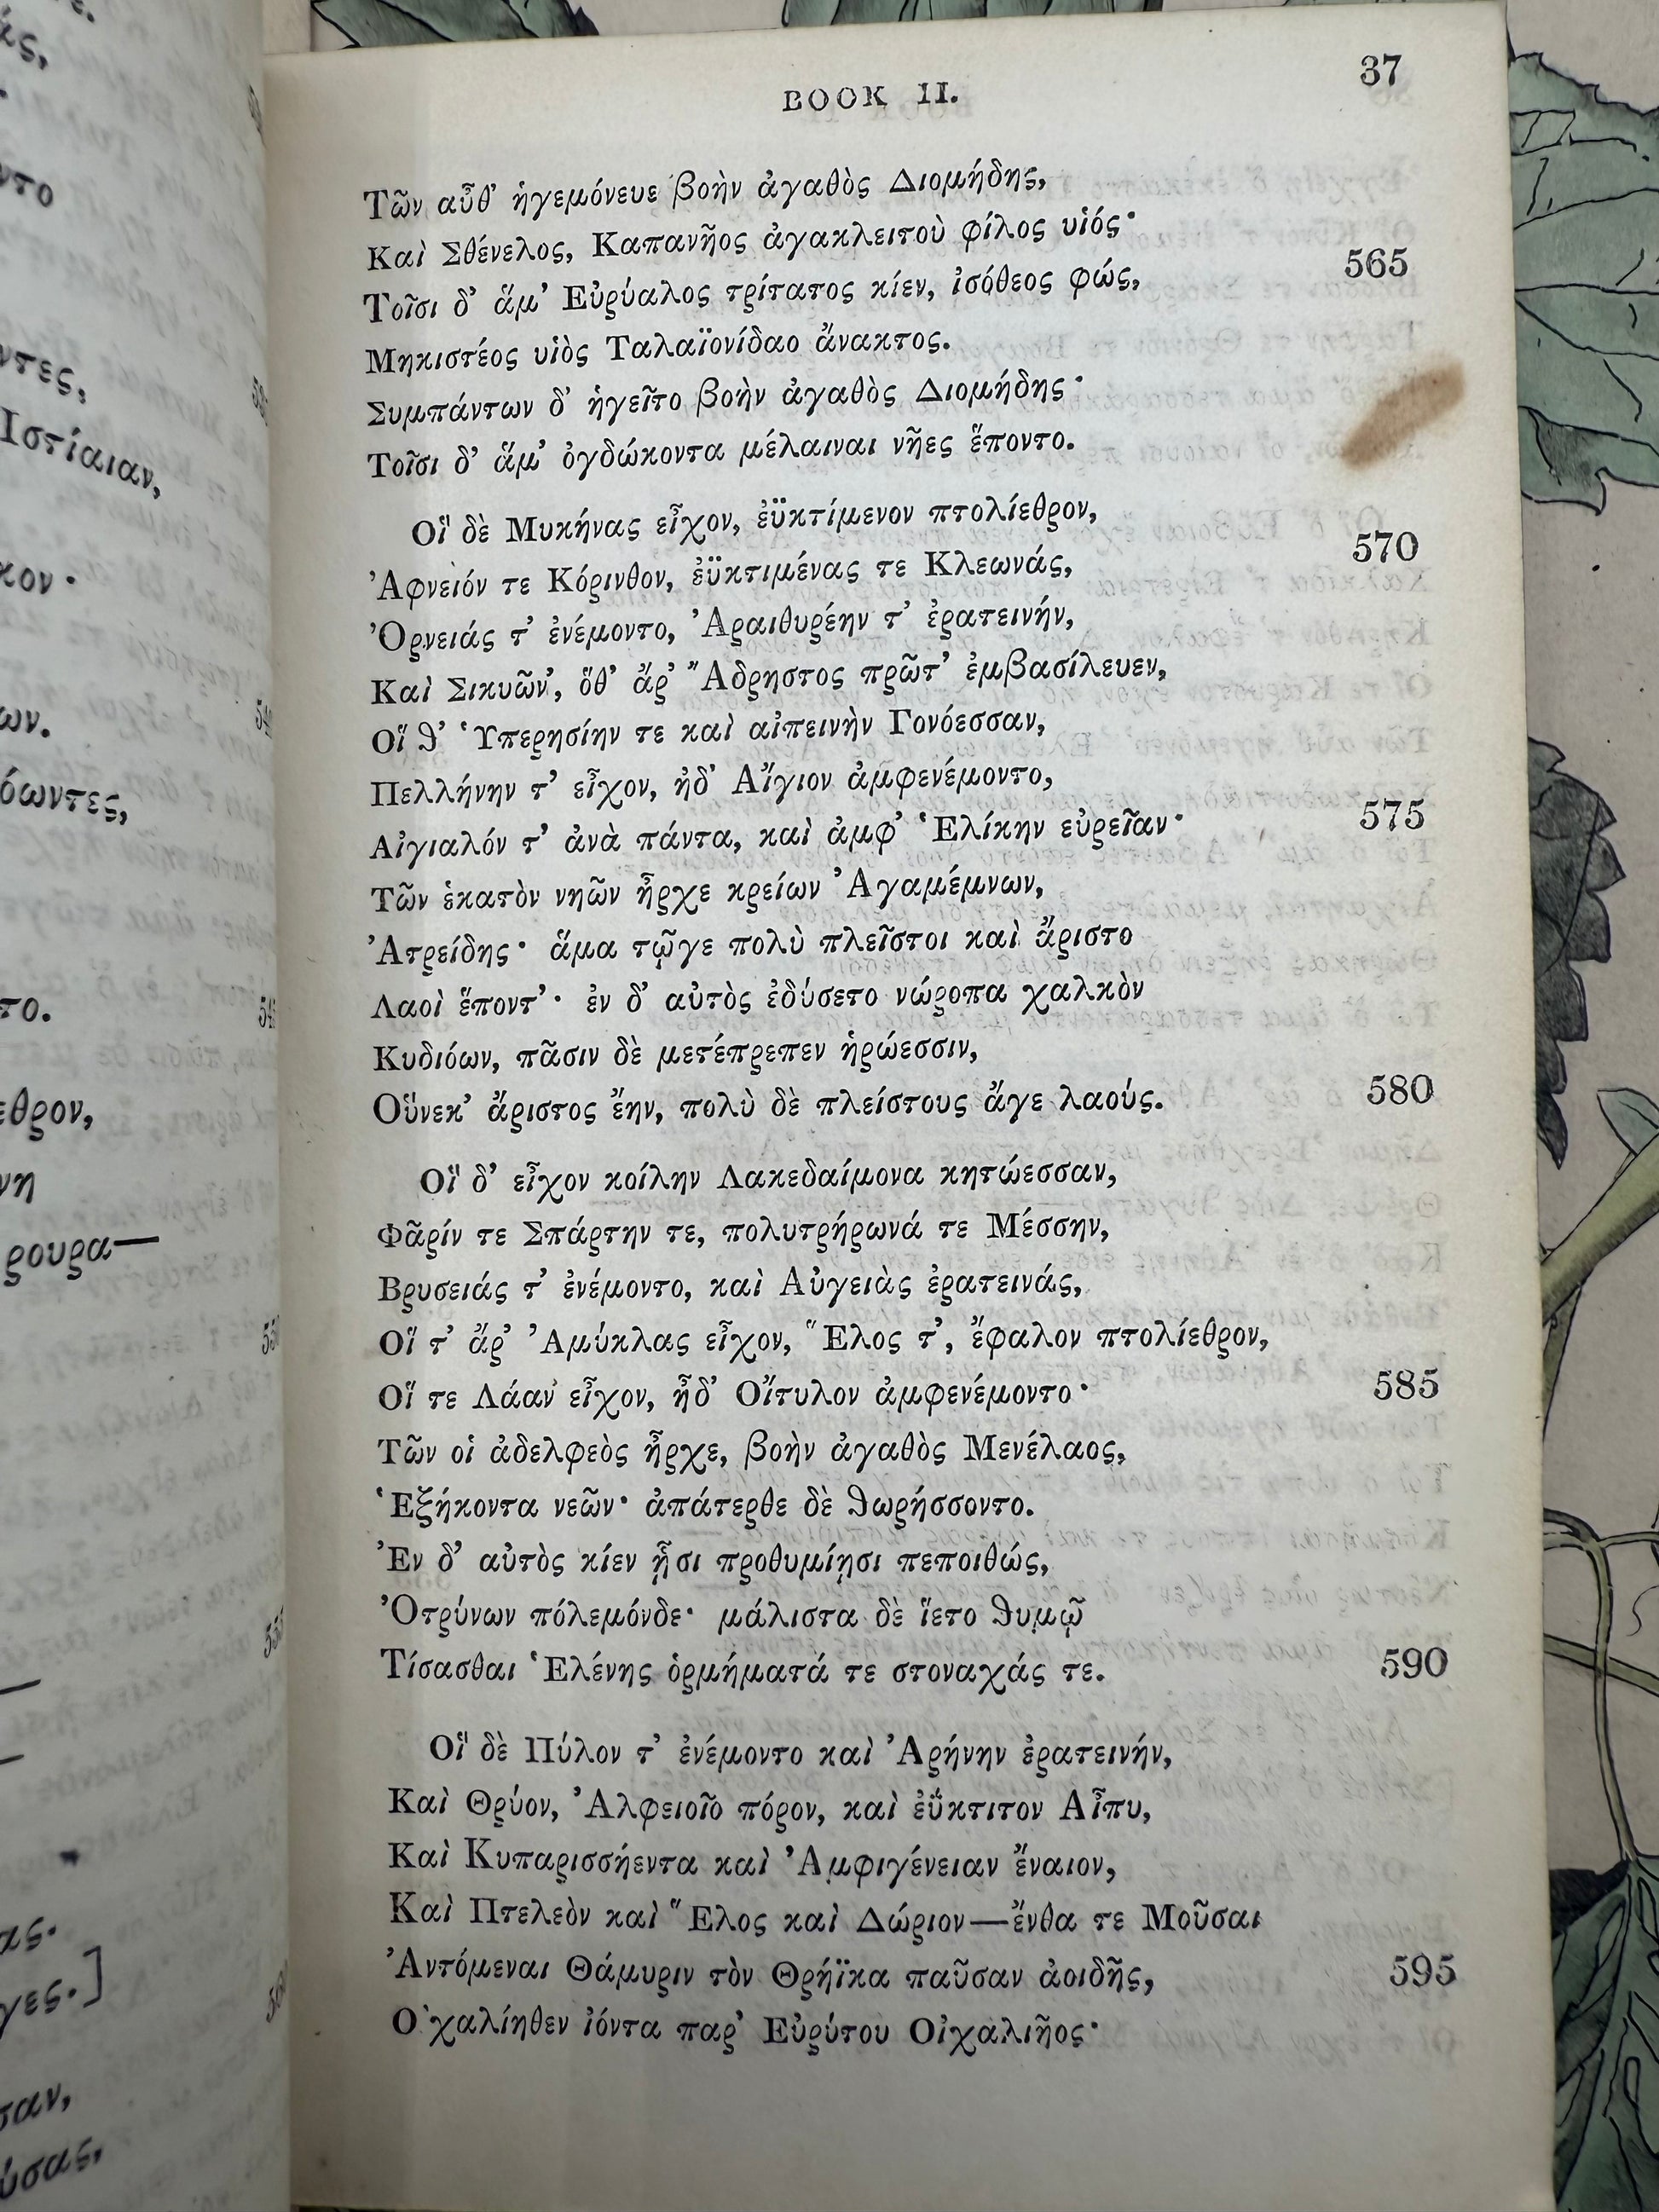 BOOK II. 37
Τῶν αὖθ' ἡγεμόνευε βοὴν ἀγαθὸς Διομήδης,
Καὶ Σθένελος, Καπανῆος ἀγακλειτοὺ φίλος υἱός·
Τοῖσι δ' ἅμ' Εὐρύαλος τρίτατος κίεν, ἰσόθεος φώς, 565
Μηκιστέος υἱὸς Ταλαϊονίδαο ἄνακτος.
Συμπάντων δ' ἡγεῖτο βοὴν ἀγαθὸς Διομήδης·
Τοῖσι δ' ἅμ' ὀγδώκοντα μέλαιναι νῆες ἕποντο.
Οἳ δὲ Μυκήνας εἶχον, ἐϋκτίμενον πτολίεθρον,
Ἀφνειόν τε Κόρινθον, ἐϋκτιμένας τε Κλεωνάς, 570
Ὀρνειάς τ' ἐνέμοντο, Ἀραιθυρέην τ' ἐρατεινήν,
Καὶ Σικυῶν', ὅθ' ἄρ' Ἄδρηστος πρῶτ' ἐμβασίλευεν,
Οἵ ϑ' Ὑπερησίην τε καὶ αἰπεινὴν Γονόεσσαν,
Πελλήνην τ' εἶχον, ἠδ' Αἴγιον ἀμφενέμοντο,
Αἰγιαλόν τ' ἀνὰ πάντα, καὶ ἀμφ' Ἑλίκην εὐρεῖαν· 575
Τῶν ἑκατὸν νηῶν ἦρχε κρείων Ἀγαμέμνων,
Ἀτρείδης· ἅμα τῷγε πολὺ πλεῖστοι καὶ ἄριστο
Λαοὶ ἕποντ'· ἐν δ' αὐτὸς ἐδύσετο νώροπα χαλκὸν
Κυδιόων, πᾶσιν δὲ μετέπρεπεν ἡρώεσσιν,
Οὕνεκ' ἄριστος ἔην, πολὺ δὲ πλείστους ἄγε λαούς. 580
Οἳ δ' εἶχον κοίλην Λακεδαίμονα κητώεσσαν,
Φᾶρίν τε Σπάρτην τε, πολυτρήρωνά τε Μέσσην,
Βρυσειάς τ' ἐνέμοντο, καὶ Αὐγειὰς ἐρατεινάς,
Οἵ τ' ἄρ' Ἀμύκλας εἶχον, Ἕλος τ', ἔφαλον πτολίεθρον,
Οἵ τε Λάαν εἶχον, ἦδ' Οἴτυλον ἀμφενέμοντο· 585
Τῶν οἱ ἀδελφεὸς ἦρχε, βοὴν ἀγαθὸς Μενέλαος,
Ἑξήκοντα νεῶν· ἀπάτερθε δὲ ϑωρήσσοντο.
Ἐν δ' αὐτὸς κίεν ᾗσι προθυμίῃσι πεποιθώς,
Ὀτρύνων πόλεμόνδε· μάλιστα δὲ ἵετο ϑυμῷ
Τίσασθαι Ἑλένης ὁρμήματά τε στοναχάς τε. 590
Οἳ δὲ Πύλον τ' ἐνέμοντο καὶ Ἀρήνην ἐρατεινήν,
Καὶ Θρύον, Ἀλφειοῖο πόρον, καὶ ἐΰκτιτον Αἶπυ,
Καὶ Κυπαρισσήεντα καὶ Ἀμφιγένειαν ἔναιον,
Καὶ Πτελεὸν καὶ Ἕλος καὶ Δώριον—ἔνθα τε Μοῦσαι
Ἀντόμεναι Θάμυριν τὸν Θρήϊκα παῦσαν ἀοιδῆς, 595
Οἰχαλίηθεν ἰόντα παρ' Εὐρύτου Οἰχαλιῆος·